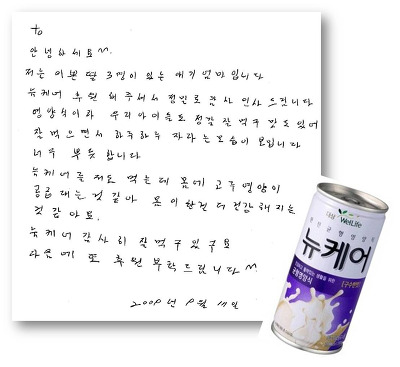 to
안녕하세요^^.
저는 이쁜 딸 3명이 있는 애기엄마입니다
뉴케어 후원 해주셔서 정말로 감사 인사 드립니다
영양식이라 우리아이들도 정감 잘먹구 맛도 있어
잘 먹으면서 하루하루 자라는 모습이 보입니다
너무 뿌듯 합니다
뉴케어를 저도 먹는데 몸에 고루영양이
공급 대는것 같아 몸이 한건 더 건강 해지는
것 같아요.
뉴케어 감사히 잘 먹구 있구요
다음에 또 후원 부탁드립니다^^
2009년 9월
대상 WelLife
균형영양식
뉴케어
구수한맛
균형영양식